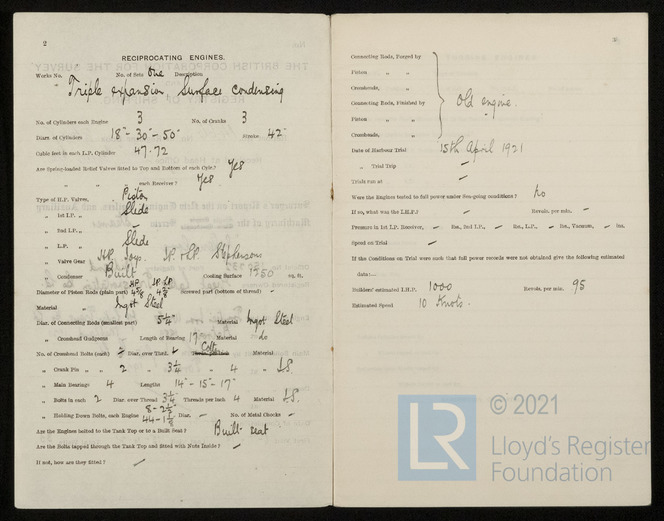 2
RECIPROCATING ENGINES.
Works No. No. of Sets One Description
Triple expansion Surface condensing
No. of Cylinders each Engine 3 No. of Cranks 3
Diars. of Cylinders 18" - 30" - 50" Stroke 42"
Cubic feet in each L.P. Cylinder 47.72
Are Spring-loaded Relief Valves fitted to Top and Bottom of each Cylr.? Yes
" " each Receiver? Yes
Type of H.P. Valves, Piston
" 1st I.P. " Slide
" 2nd I.P. " -
" L.P. " Slide
" Valve Gear H.P. Joys. I.P. & L.P. Stephensons
" Condenser Built Cooling Surface 1350 sq. ft.
Diameter of Piston Rods (plain part) Screwed part (bottom of thread) -
Material Ingot Steel
Diar. of Connecting Rods (smallest part) 5 1/4" Material Ingot Steel
" Crosshead Gudgeons Length of Bearing Material do
No. of Crosshead Bolts (each) Diar. over Thrd. Cotter Material
" Crank Pin " " 2 " 3 1/4 " 4 " I.S.
" Main Bearings 4 Lengths 14" - 15" - 17"
" Bolts in each 2 Diar. over Thread 3 1/4 Threads per inch 4 Material I.S.
" Holding Down Bolts, each Engine 8 - 2 1/2 44 - 1 1/8 Diar. - No. of Metal Chocks -
Are the Engines bolted to the Tank Top or to a Built Seat? Built seat
Are the Bolts tapped through the Tank Top and fitted with Nuts Inside? -
If not, how are they fitted? -
Connecting Rods, Forged by
Piston " "
Crossheads, "
Connecting Rods, Finished by old engine.
Piston " "
Crossheads, "
Date of Harbour Trial 15th April 1921
" Trial Trip -
Trials run at -
Were the Engines tested to full power under Sea-going conditions? No
If so, what was the I.H.P.? - Revols. per min. -
Pressure in 1st I.P. Receiver, - lbs., 2nd I.P., - lbs., L.P., - lbs., Vacuum, - ins.
Speed on Trial -
If the Conditions on Trial were such that full power records were not obtained give the following estimated
data:-
Builders' estimated I.H.P. 1000 Revols. per min. 95
Estimated Speed 10 Knots.
© 2021
LR
Lloyd's Register
Foundation